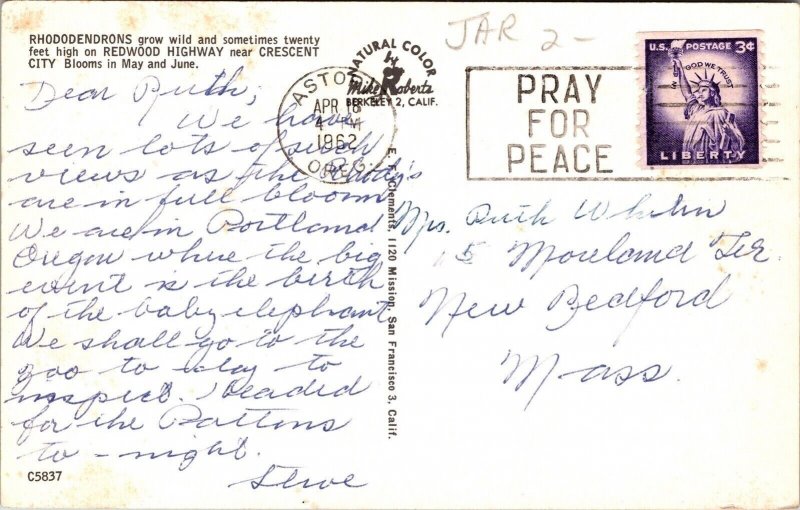 RHODODENDRONS grow wild and sometimes twenty
feet high on REDWOOD HIGHWAY near CRESCENT
CITY Blooms in May and June.
Dear Ruth,
We have
seen lots of such
views as the Rhody's
are in full bloom
We are in Portland
Oregon where the big
event is the birth
of the baby elephant
We shall go to the
zoo to-day to
inspect. Headed
for the Pattons
to-night.
C5837
NATURAL COLOR
by
Mike Roberts
BERKELEY 2, CALIF.
ASTORIA
APR 18
4 PM
1962
OREG.
E. F. Clements, 1120 Mission, San Francisco 3, Calif.
JAR 2-
PRAY
FOR
PEACE
U.S. POSTAGE 3¢
IN GOD WE TRUST
LIBERTY
Mrs. Ruth
5 Moreland Ter.
New Bedford
Mass.